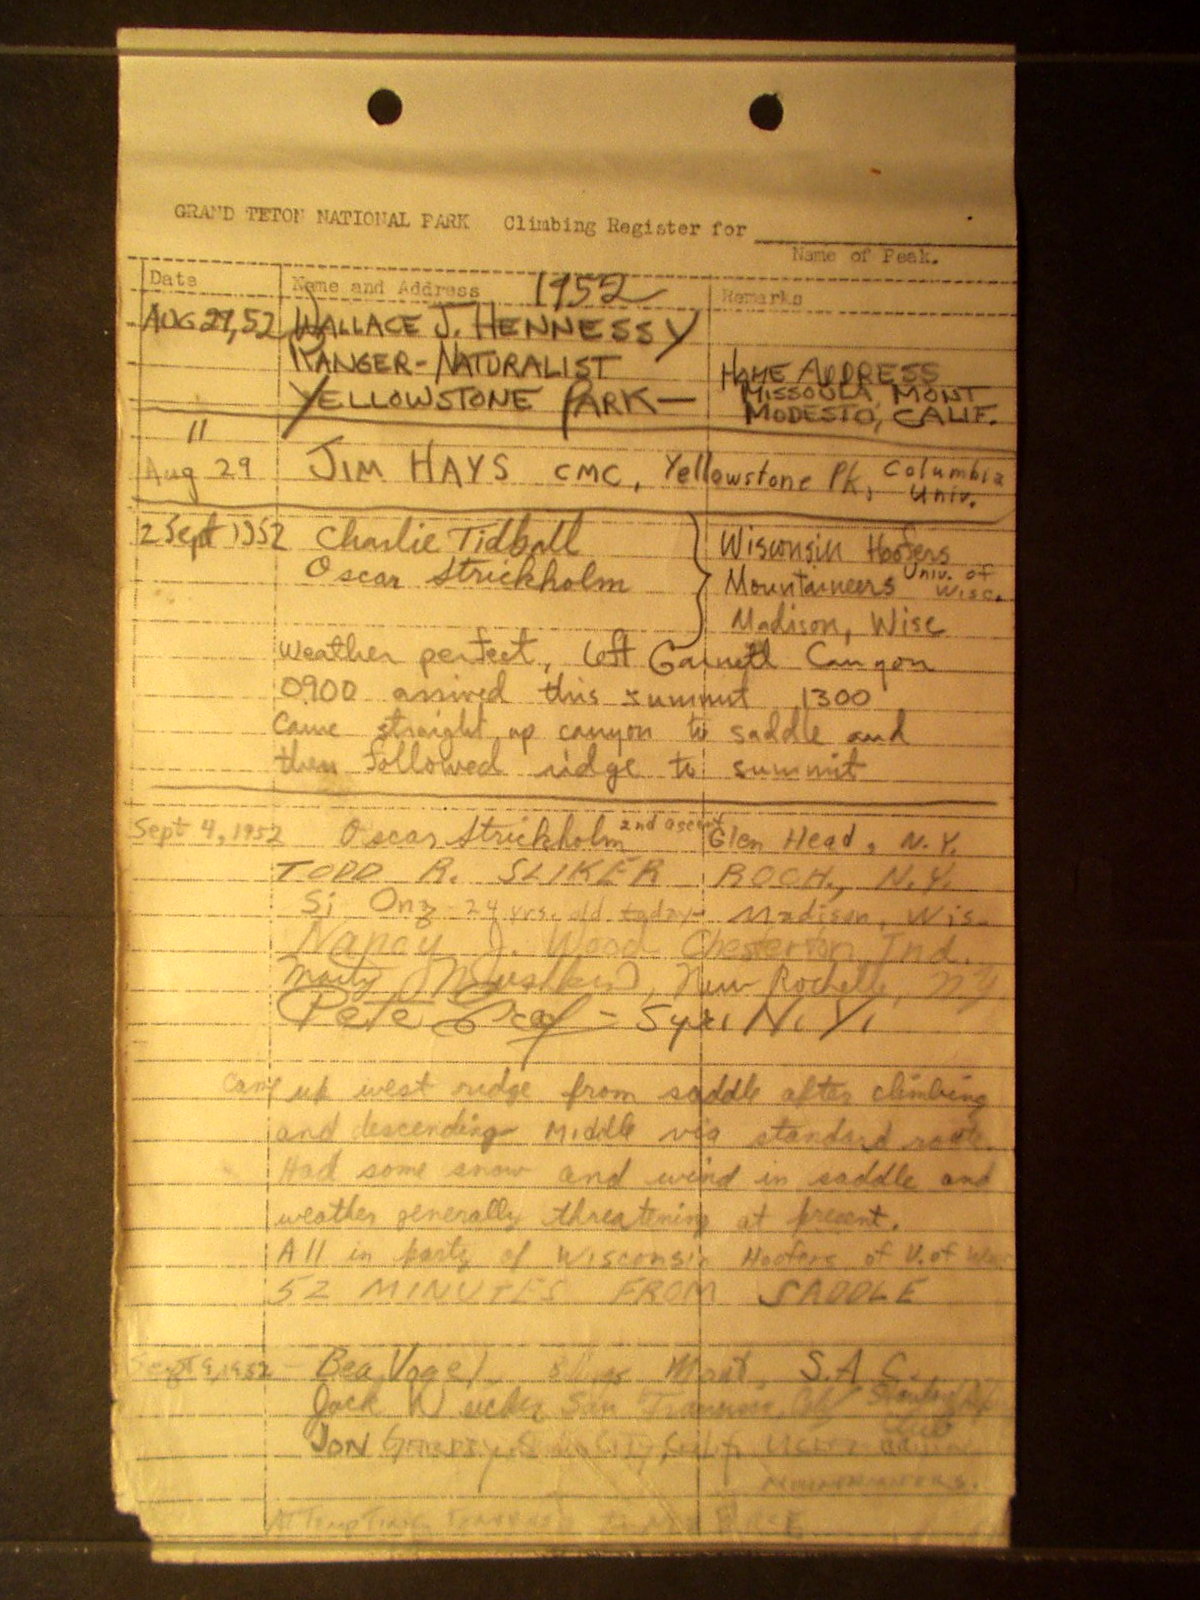 GRAND TETON NATIONAL PARK Climbing Register for
Name of Peak.
Date Name and Address 1952 Remarks
AUG 29, 52 WALLACE J. HENNESSY
RANGER-NATURALIST
HOME ADDRESS
YELLOWSTONE PARK—
MISSOULA, MONT
MODESTO, CALIF.
"
Aug 29 JIM HAYS CMC, Yellowstone Pk, Columbia
Univ.
2 Sept 1952 Charlie Tidball Wisconsin Hoofers
Oscar Strickholm Mountaineers Univ. of
Wisc.
Madison, Wisc
Weather perfect, left Garnett Canyon
0900 arrived this summit 1300
Came straight up canyon to saddle and
then followed ridge to summit
Sept 4, 1952 Oscar Strickholm 2nd ascent Glen Head, N.Y.
TODD R. SLIKER ROCH., N.Y.
Si Ong 24 yrs. old today Madison, Wis.
Nancy J. Wood Chesterton, Ind.
New Rochelle, NY
Pete - Syr. N.Y.
Came up west ridge from saddle after climbing
and descending Middle via standard route.
Had some snow and wind in saddle and
weather generally threatening at present.
All in party of Wisconsin Hoofers of U. of Wisc
52 MINUTES FROM SADDLE
Sept 9, 1952 - Bea Vogel Mont. S.A.C.
Jack San Francisco, Calif
JON